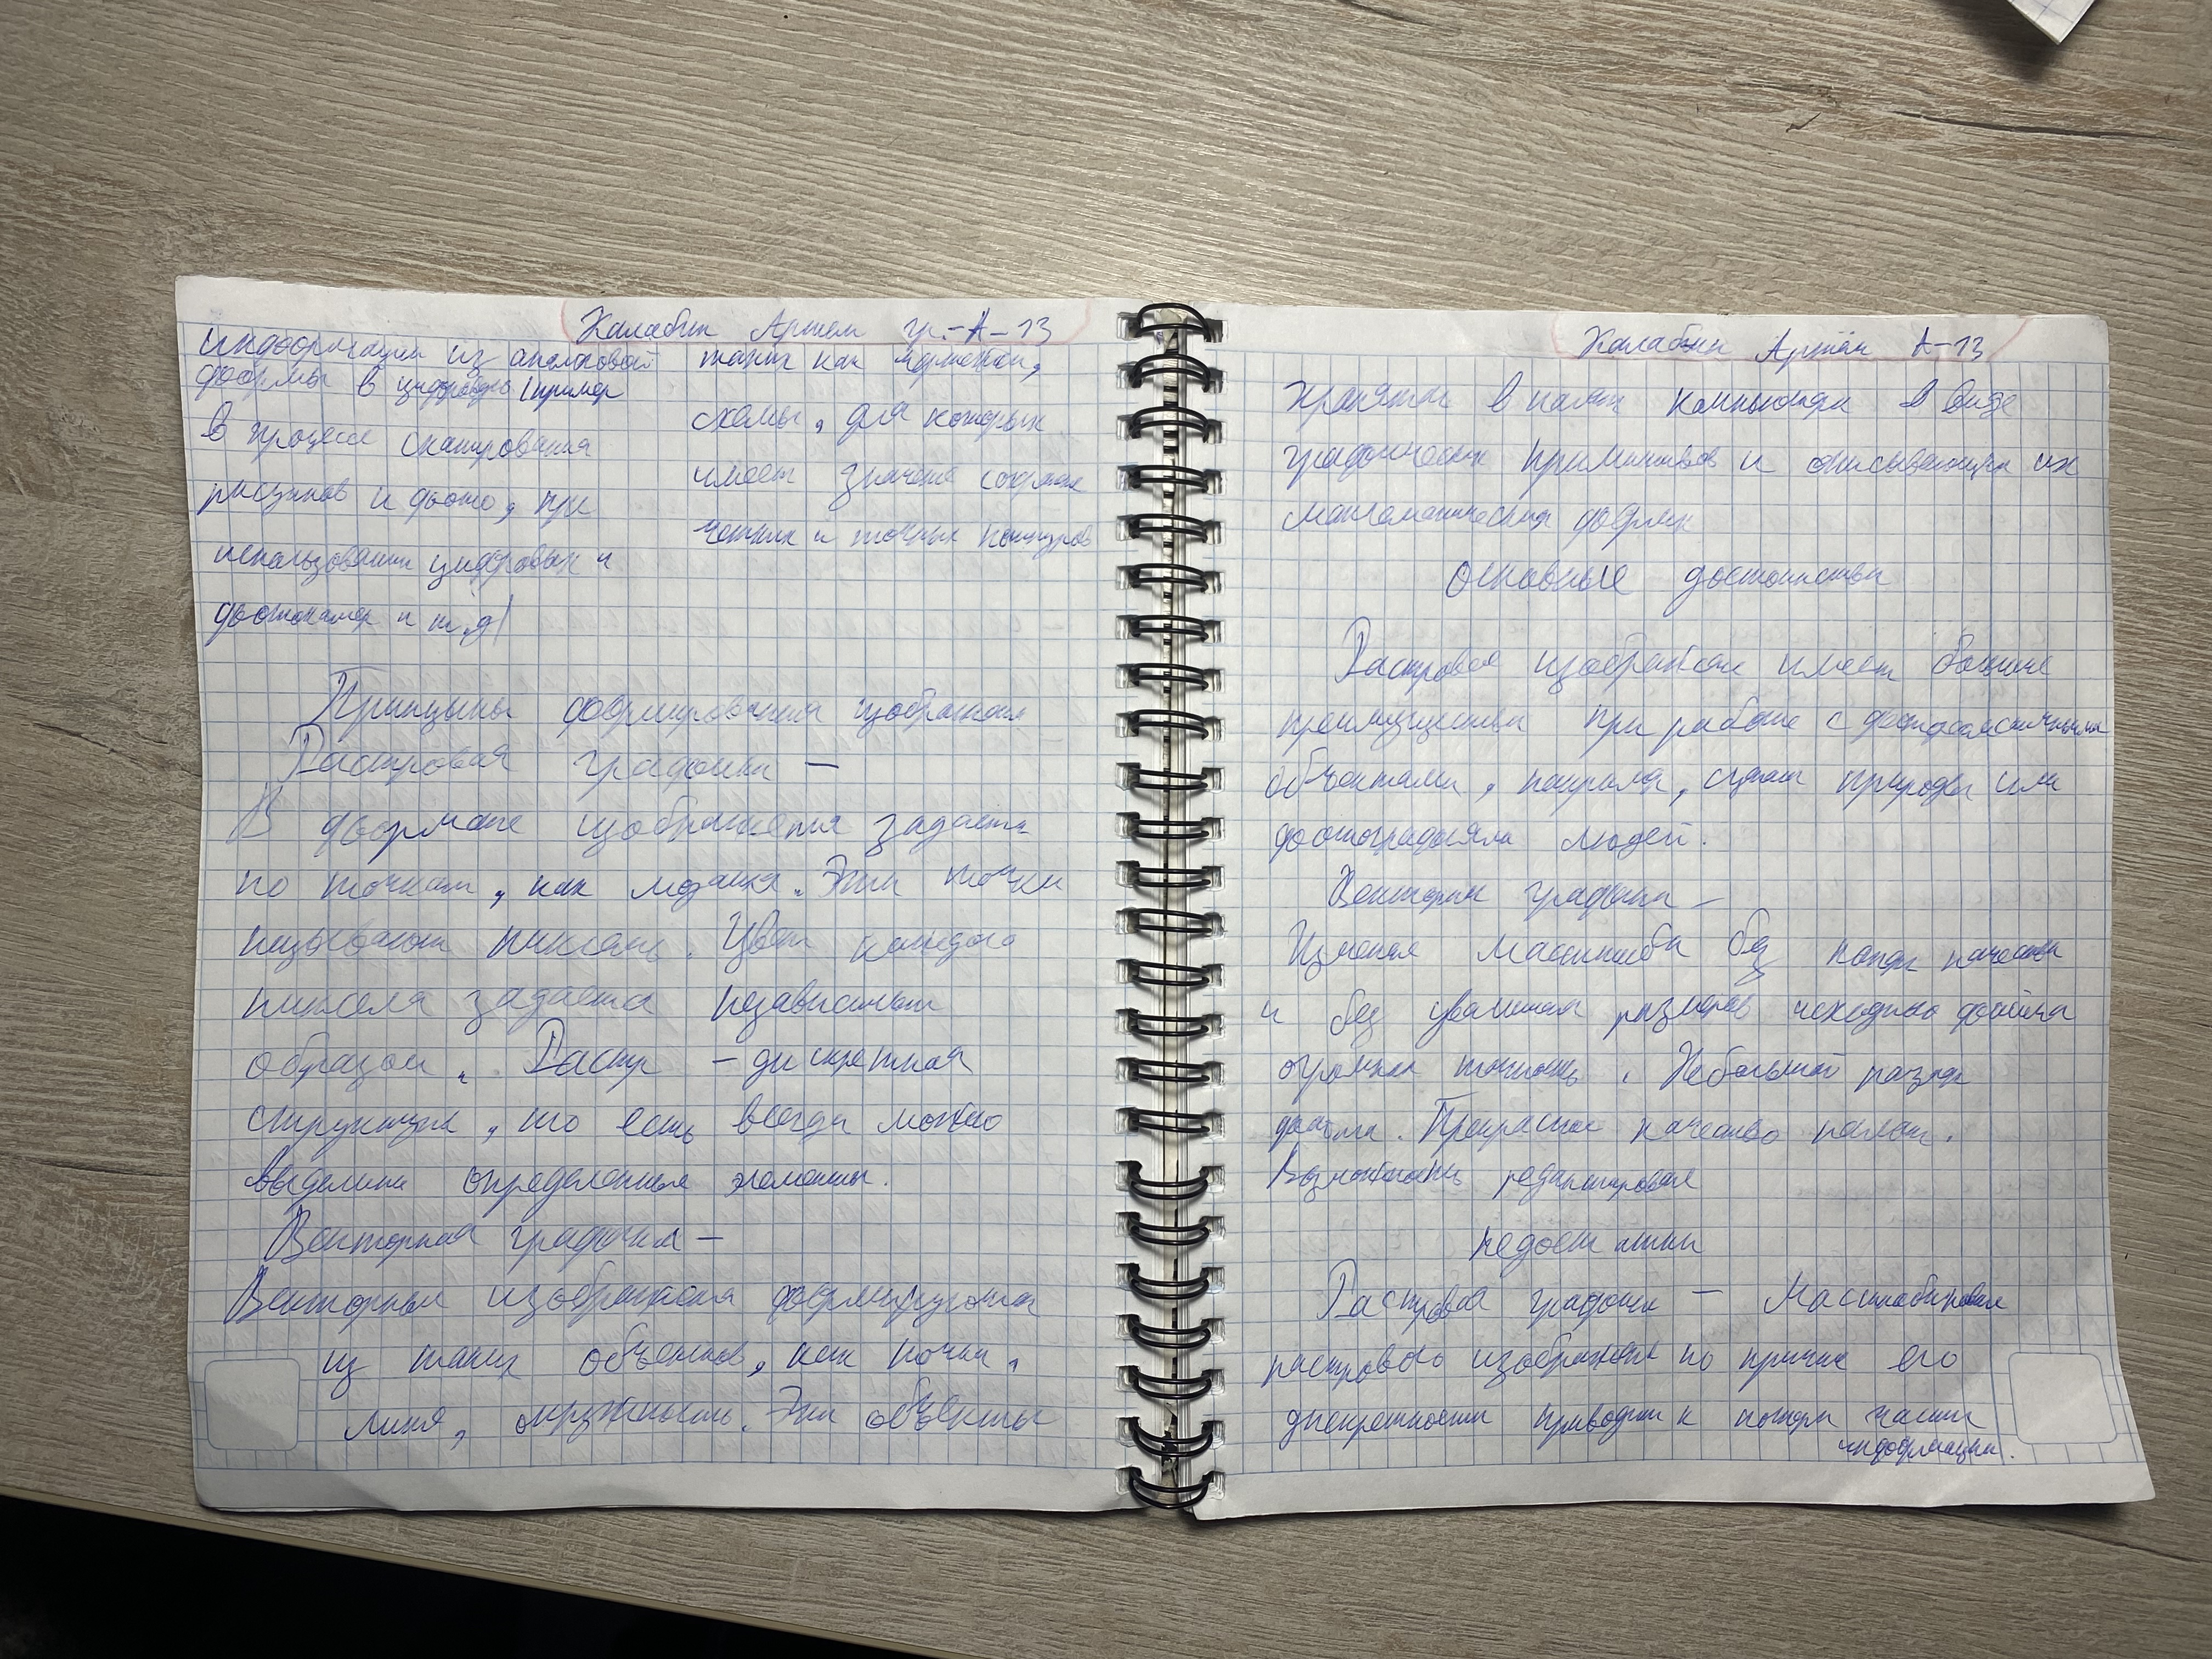 Калабин Артём гр.-А-13
информации из аналоговой
формы в цифровую (пример
в процессе сканирования
рисунков и фото, при
использовании цифровых и
фотокамер и т.д)
таких как чертежей,
схемы, для которых
имеет значение
четких и точных контуров
Принцыпы формирования изображения
Растровая графики —
В формате изображения задается
по точкам, как мозаика. Эти точки
называют пиксель. Цвет каждого
пикселя задается независимым
образом. Растр – дискретная
структура, то есть всегда можно
выделить определенные элементы.
Векторная графика –
Векторные изображения формируются
из таких объектов, как точки,
линя, окружность. Эти объекты
Калабин Артём А-13
хранятся в памяти компьютера в виде
графических примитивов и описывающих их
математических формул
основные достоинства
Растровое изображение имеет большие
преимущества при работе с фотореалистичными
объектами, например, сцены природы или
фотографиями людей.
Векторная графика –
Изменение масштаба без потери качества
и без увеличения размеров исходного файла
огромная точность. Небольшой размер
файла. Прекрасное качество печати.
Возможность редактирования
недостатки
Растровая графика – Масштабирование
растрового изображения по причине его
дискретности приводит к потери части
информации.